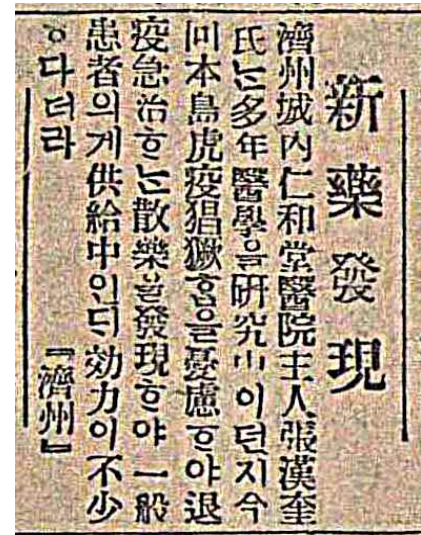 新藥發現
濟州城內仁和堂醫院主人張漢奎
氏ᄂᆞᆫ多年醫學을硏究中이던지今
回本島虎疫猖獗ᄒᆞᆷ을憂慮ᄒᆞ야退
疫急治ᄒᆞᄂᆞᆫ散藥을發現ᄒᆞ야一般
患者의게供給中인ᄃᆡ効力이不少
ᄒᆞ다더라 『濟州』